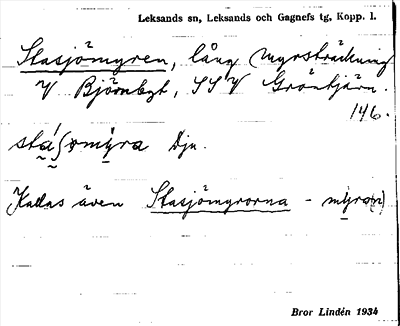 Leksands sn, Leksands och Gagnefs tg, Kopp. l.
Stasjömyren, lång myrsträckning
V Björnbygt, SSV Gröntjärn.
146.
Dju.
Kallas även Stasjömyrorna -
Bror Lindén 1934